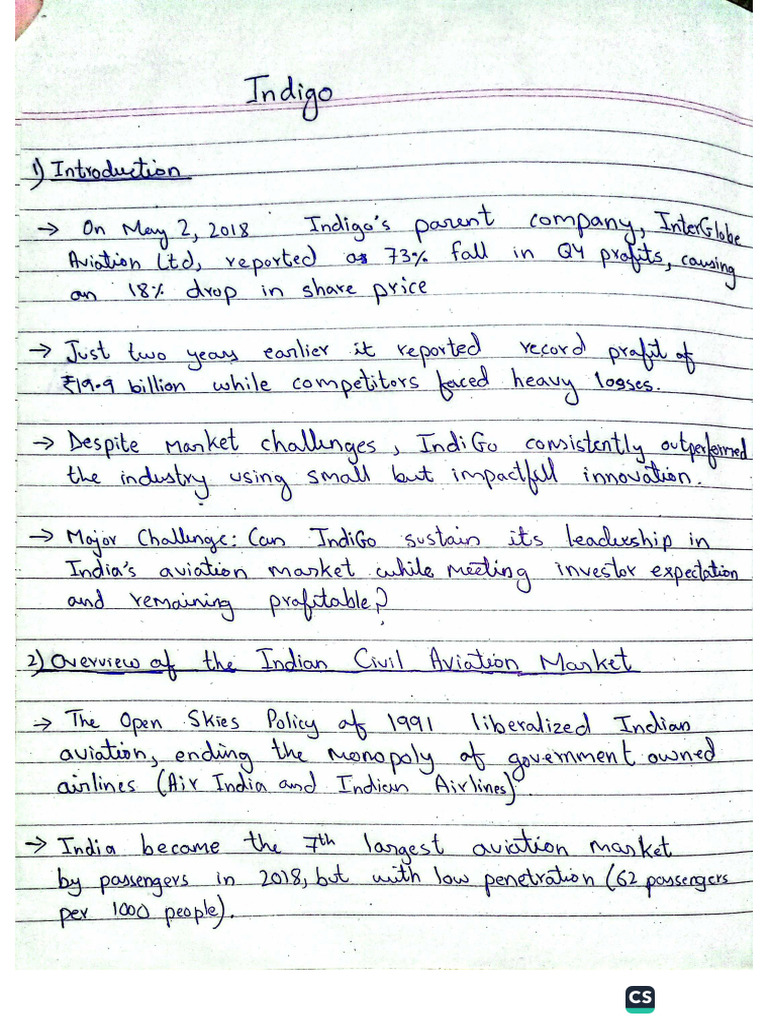 Indigo
1) Introduction
→ On May 2, 2018 Indigo's parent company, InterGlobe
Aviation Ltd, reported as 73% fall in Q4 profits, causing
an 18% drop in share price
→ Just two years earlier it reported record profit of
₹19.9 billion while competitors faced heavy losses.
→ Despite market challenges, IndiGo consistently outperformed
the industry using small but impactfull innovation.
→ Major Challenge: Can IndiGo sustain its leadership in
India's aviation market while meeting investor expectation
and remaining profitable?
2) Overview of the Indian Civil Aviation Market
→ The Open Skies Policy of 1991 liberalized Indian
aviation, ending the monopoly of government owned
airlines (Air India and Indian Airlines).
→ India became the 7th largest aviation market
by passengers in 2018, but with low penetration (62 passengers
per 1000 people).
CS